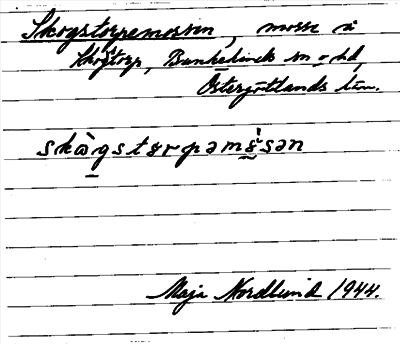 Skogstorpemossen, mosse å
Skogstorp, Bankekinds sn o hd,
Östergötlands län.
skὼgstɵrpəmɵ̀sən
Maja Nordlund 1944.